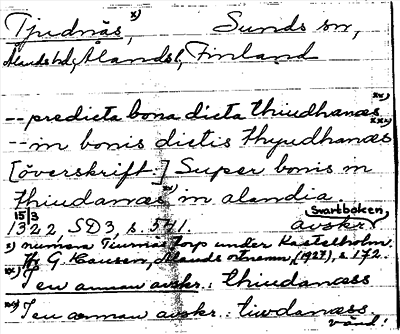 Tjudnäs, x) Sunds sn,
Ålands hd, Ålands l, Finland
-- predicta bona dicta thiudhanæs xx)
-- in bonis dictis thyudhanæs xxx)
[överskrift:] Super bonis in
thiudanæs in alandia.
15/3 1322, SD3, s. 541. Svartboken, avskr.
x) numera Tjurnäs torp under Kastelholm.
Jfr G. Hausen, Ålands ortnamn, (1927), s. 172.
xx) I en annan avskr.: thiudanæss
xxx) I en annan avskr.: tiwdanæss
vänd!